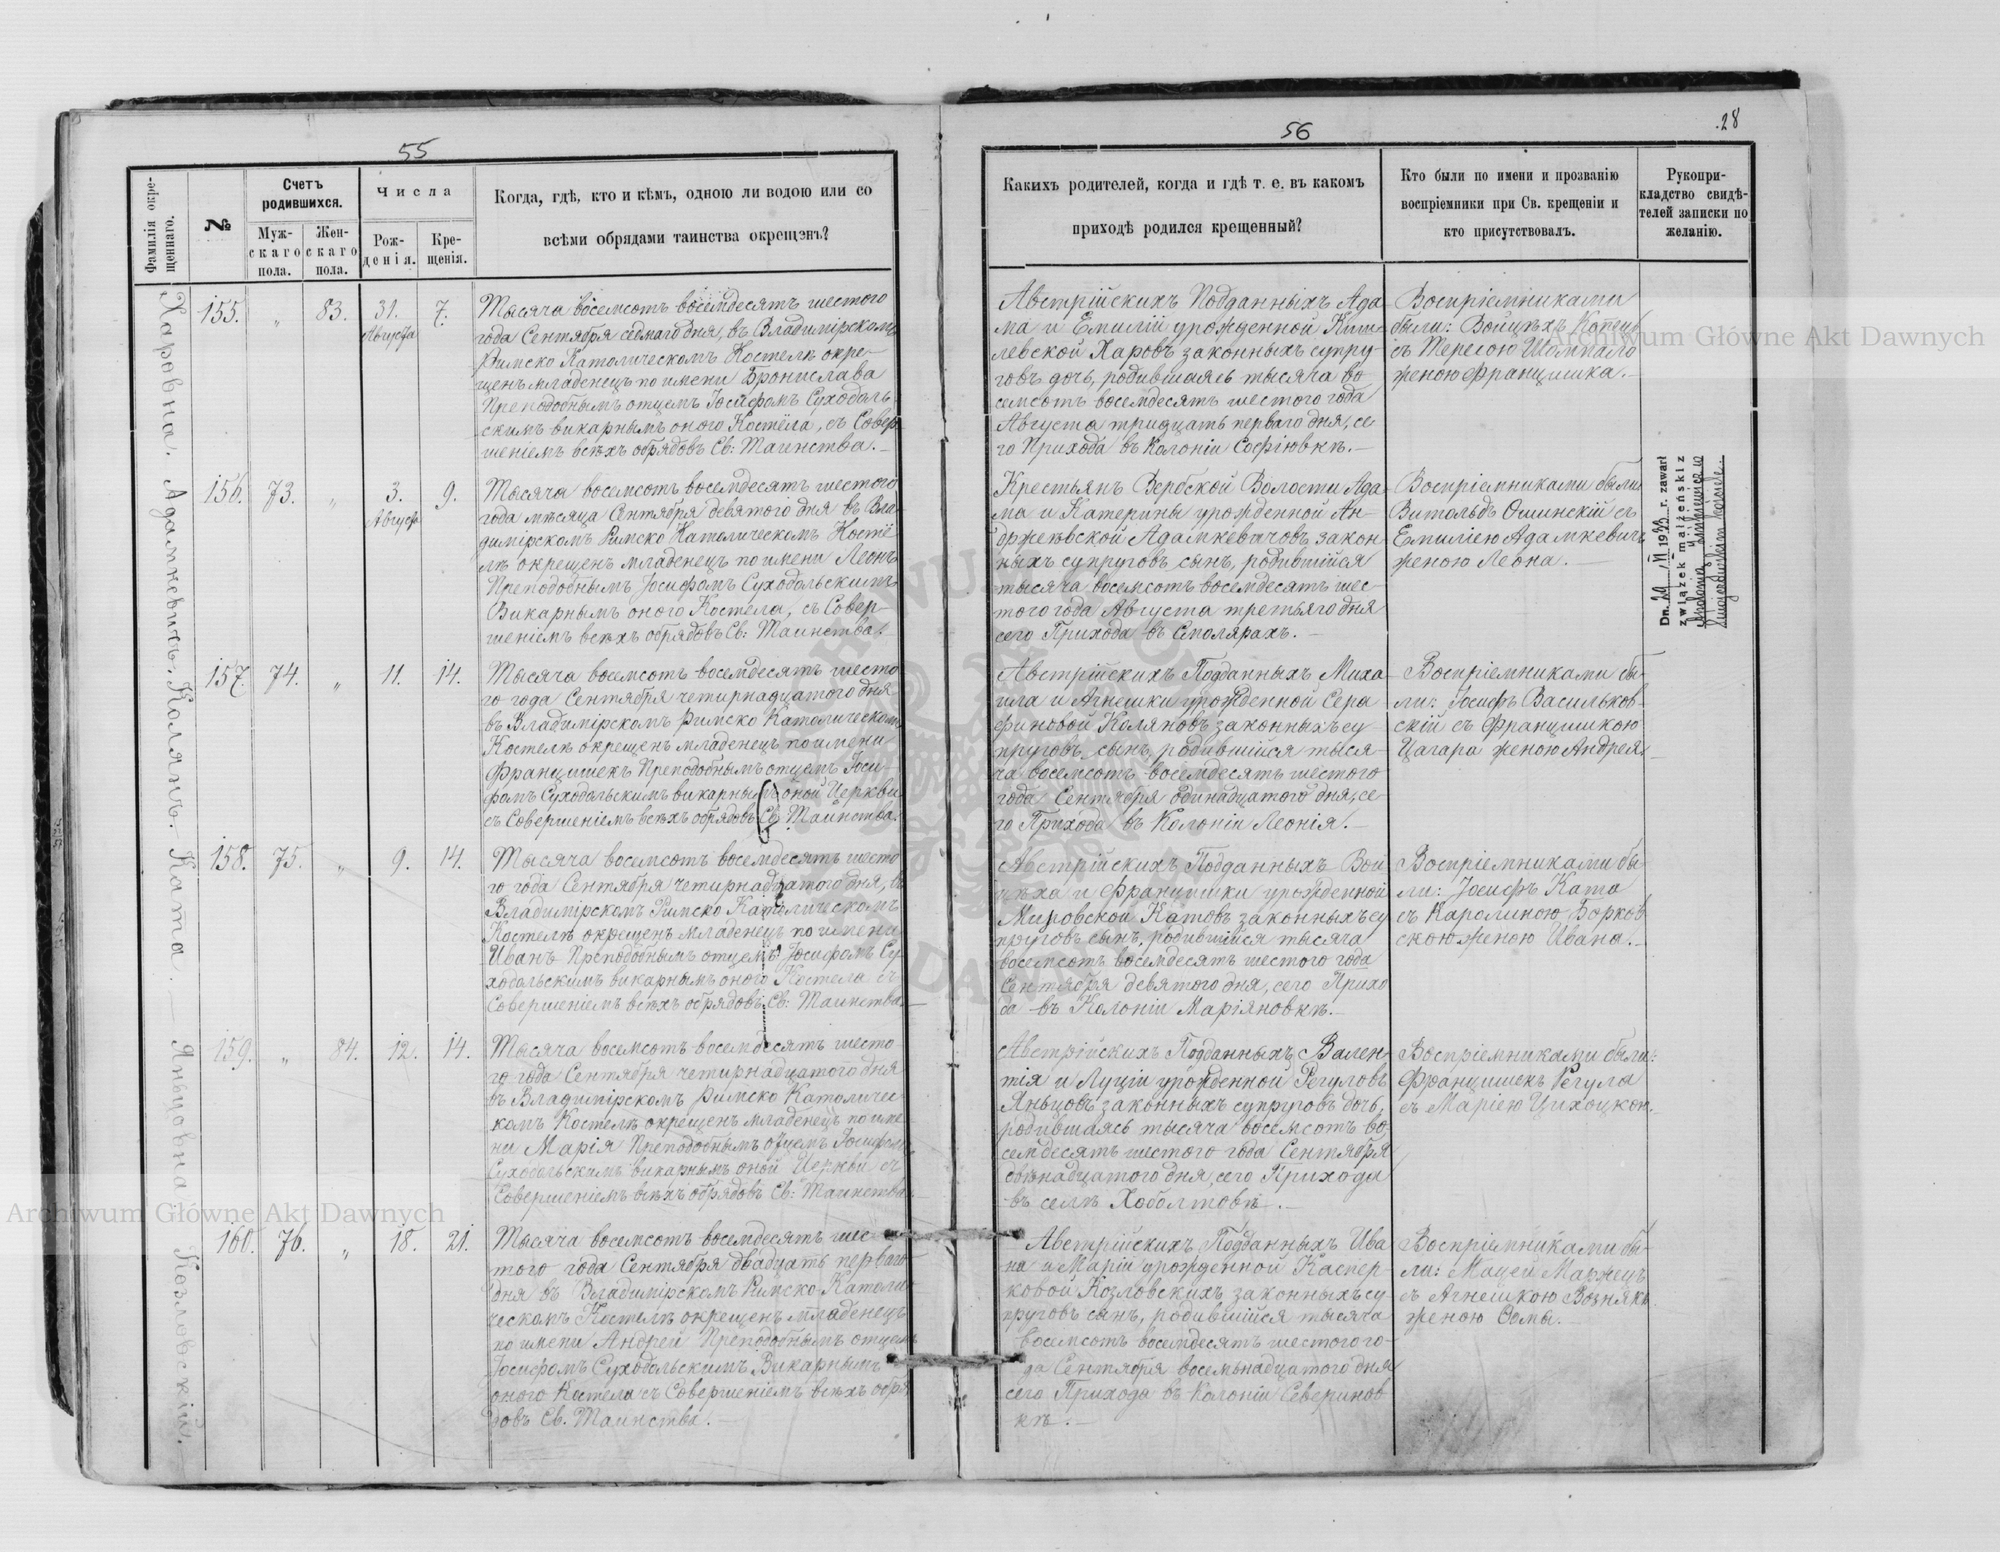 55
Фамилія окре-
щеннаго.
№
Счетъ
родившихся.
Муж-
скаго
пола.
Жен-
скаго
пола.
Числа
Рож-
денія.
Кре-
щенія.
Когда, гдѣ, кто и кѣмъ, одною ли водою или со
всѣми обрядами таинства окрещэнъ?
Харовна.
155.
„
83.
31.
Августа
7.
Тысяча восемсотъ восемдесятъ шестого
года Сентября седмаго дня, въ Владимірскомъ
Римско Католическомъ Костелѣ окре-
щенъ младенецъ по имени Бронислава
Преподобнымъ отцемъ Іосифомъ Суходоль-
скимъ викарнымъ оного Костёла, съ Совер-
шеніемъ всѣхъ обрядовъ Св: Таинства.—
Адамкевичъ.
156.
73.
„
3.
Августа
9.
Тысяча восемсотъ восемдесятъ шестого
года мѣсяца Сентября девятого дня въ Вла-
димірскомъ Римско Католическомъ Костё-
лѣ окрещенъ младенецъ по имени Леонъ
Преподобнымъ Іосифомъ Суходольскимъ
Викарнымъ оного Костела, съ Совер-
шеніемъ всѣхъ обрядовъ Св: Таинства.
Колянъ.
157.
74.
„
11.
14.
Тысяча восемсотъ восемдесятъ шесто-
го года Сентября четирнадцатого дня
въ Владимірскомъ Римско Католическомъ
Костелѣ окрещенъ младенецъ по имени
Францишекъ Преподобнымъ отцемъ Іоси-
фомъ Суходольскимъ викарнымъ оной Церкви
съ Совершеніемъ всѣхъ обрядовъ Св. Таинства.
Ката.—
158.
75.
„
9.
14.
Тысяча восемсотъ восемдесятъ шесто-
го года Сентября четирнадцатого дня, въ
Владимірскомъ Римско Католическомъ
Костелѣ окрещенъ младенецъ по имени
Иванъ Преподобнымъ отцемъ Іосифомъ Су-
ходольскимъ викарнымъ оного Костела съ
Совершеніемъ всѣхъ обрядовъ Св: Таинства.—
Яньцовна.
159.
„
84.
12.
14.
Тысяча восемсотъ восемдесятъ шесто-
го года Сентября четирнадцатого дня
въ Владимірскомъ Римско Католичес-
комъ Костелѣ окрещенъ младенецъ по име-
ни Марія Преподобнымъ отцемъ Іосифомъ
Суходольскимъ викарнымъ оной Церкви съ
Совершеніемъ всѣхъ обрядовъ Св: Таинства.
Козловскій.
160.
76.
„
18.
21.
Тысяча восемсотъ восемдесятъ шес-
того года Сентября двадцать перваго
дня въ Владимірскомъ Римско Католи-
ческомъ Костелѣ окрещенъ младенецъ
по имени Андрей Преподобнымъ отцемъ
Іосифомъ Суходольскимъ Викарнымъ
оного Костела съ Совершеніемъ всѣхъ обря-
довъ Св. Таинства.—
56
28
Какихъ родителей, когда и гдѣ т. е. въ какомъ
приходѣ родился крещенный?
Кто были по имени и прозванію
воспріемники при Св. крещеніи и
кто присутствовалъ.
Рукопри-
кладство свидѣ-
телей записки по
желанію.
Австрійскихъ Подданныхъ Ада-
ма и Емиліи урожденной
левской Харовъ законныхъ супру-
говъ дочь, родившаяся тысяча во-
семсотъ восемдесятъ шестого года
Августа тридцать перваго дня, се-
го Прихода въ Колоніи Софіювкѣ.—
Воспріемниками
были: Войцѣхъ Копецъ
съ Тересою Шампало
женою Францишка.—
Крестьянъ Вербской Волости Ада-
ма и Катерины урожденной Ан-
држеевской Адамкевичовъ закон-
ныхъ супруговъ сынъ, родившійся
тысяча восемсотъ восемдесятъ шес-
того года Августа третьяго дня
сего Прихода въ Столярахъ.—
Воспріемниками были
Витольдъ Ошинскій съ
Емиліею Адамкевичъ
женою Леона.—
Dn. 20 VI 1933 r. zawarł
związek małżeński z
Австрійскихъ Подданныхъ Миха-
ила и Агнешки урожденной Сера-
финовой Коляновъ законныхъ су-
пруговъ сынъ, родившійся тыся-
ча восемсотъ восемдесятъ шестого
года Сентября одинадцатого дня, се-
го Прихода въ Колоніи Леонія.—
Воспріемниками бы-
ли: Іосифъ Васильков-
скій съ Францишкою
Цагара женою Андрея.
Австрійскихъ Подданныхъ Вой-
цѣха и Францишки урожденной
Мировской Катовъ законныхъ су-
пруговъ сынъ, родившійся тысяча
восемсотъ восемдесятъ шестого года
Сентября девятого дня, сего Прихо-
да въ Колоніи Маріяновкѣ.—
Воспріемниками бы-
ли: Іосифъ Ката
съ Каролиною Борков-
скою женою Ивана.—
Австрійскихъ Подданныхъ Вален-
тія и Луціи урожденной Регуловъ
Яньцовъ законныхъ супруговъ дочь,
родившаясь тысяча восемсотъ во-
семдесятъ шестого года Сентября
двѣнадцатого дня, сего Прихода
въ селѣ Хоболтовѣ.—
Воспріемниками были:
Францишекъ Регула
съ Маріею Цихоцкою.
Австрійскихъ Подданныхъ Ива-
на и Маріи урожденной Каспер-
ковой Козловскихъ законныхъ су-
пруговъ сынъ, родившійся тысяча
восемсотъ восемдесятъ шестого го-
да Сентября восемьнадцатого дня
сего Прихода въ Колоніи Северинов-
кѣ.—
Воспріемниками бы-
ли: Мацей Маржецъ
съ Агнешкою Вознякъ
женою Фомы.—
Archiwum Główne Akt Dawnych
Archiwum Główne Akt Dawnych